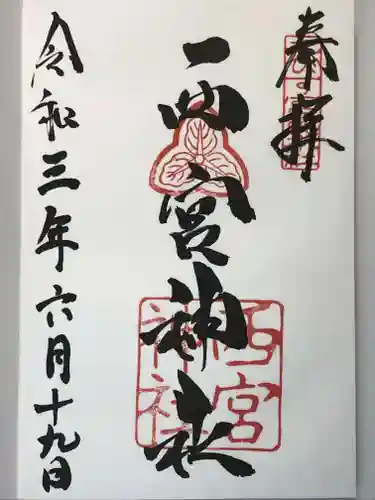 奉拝
西宮神社
西宮
神社
令和三年六月十九日